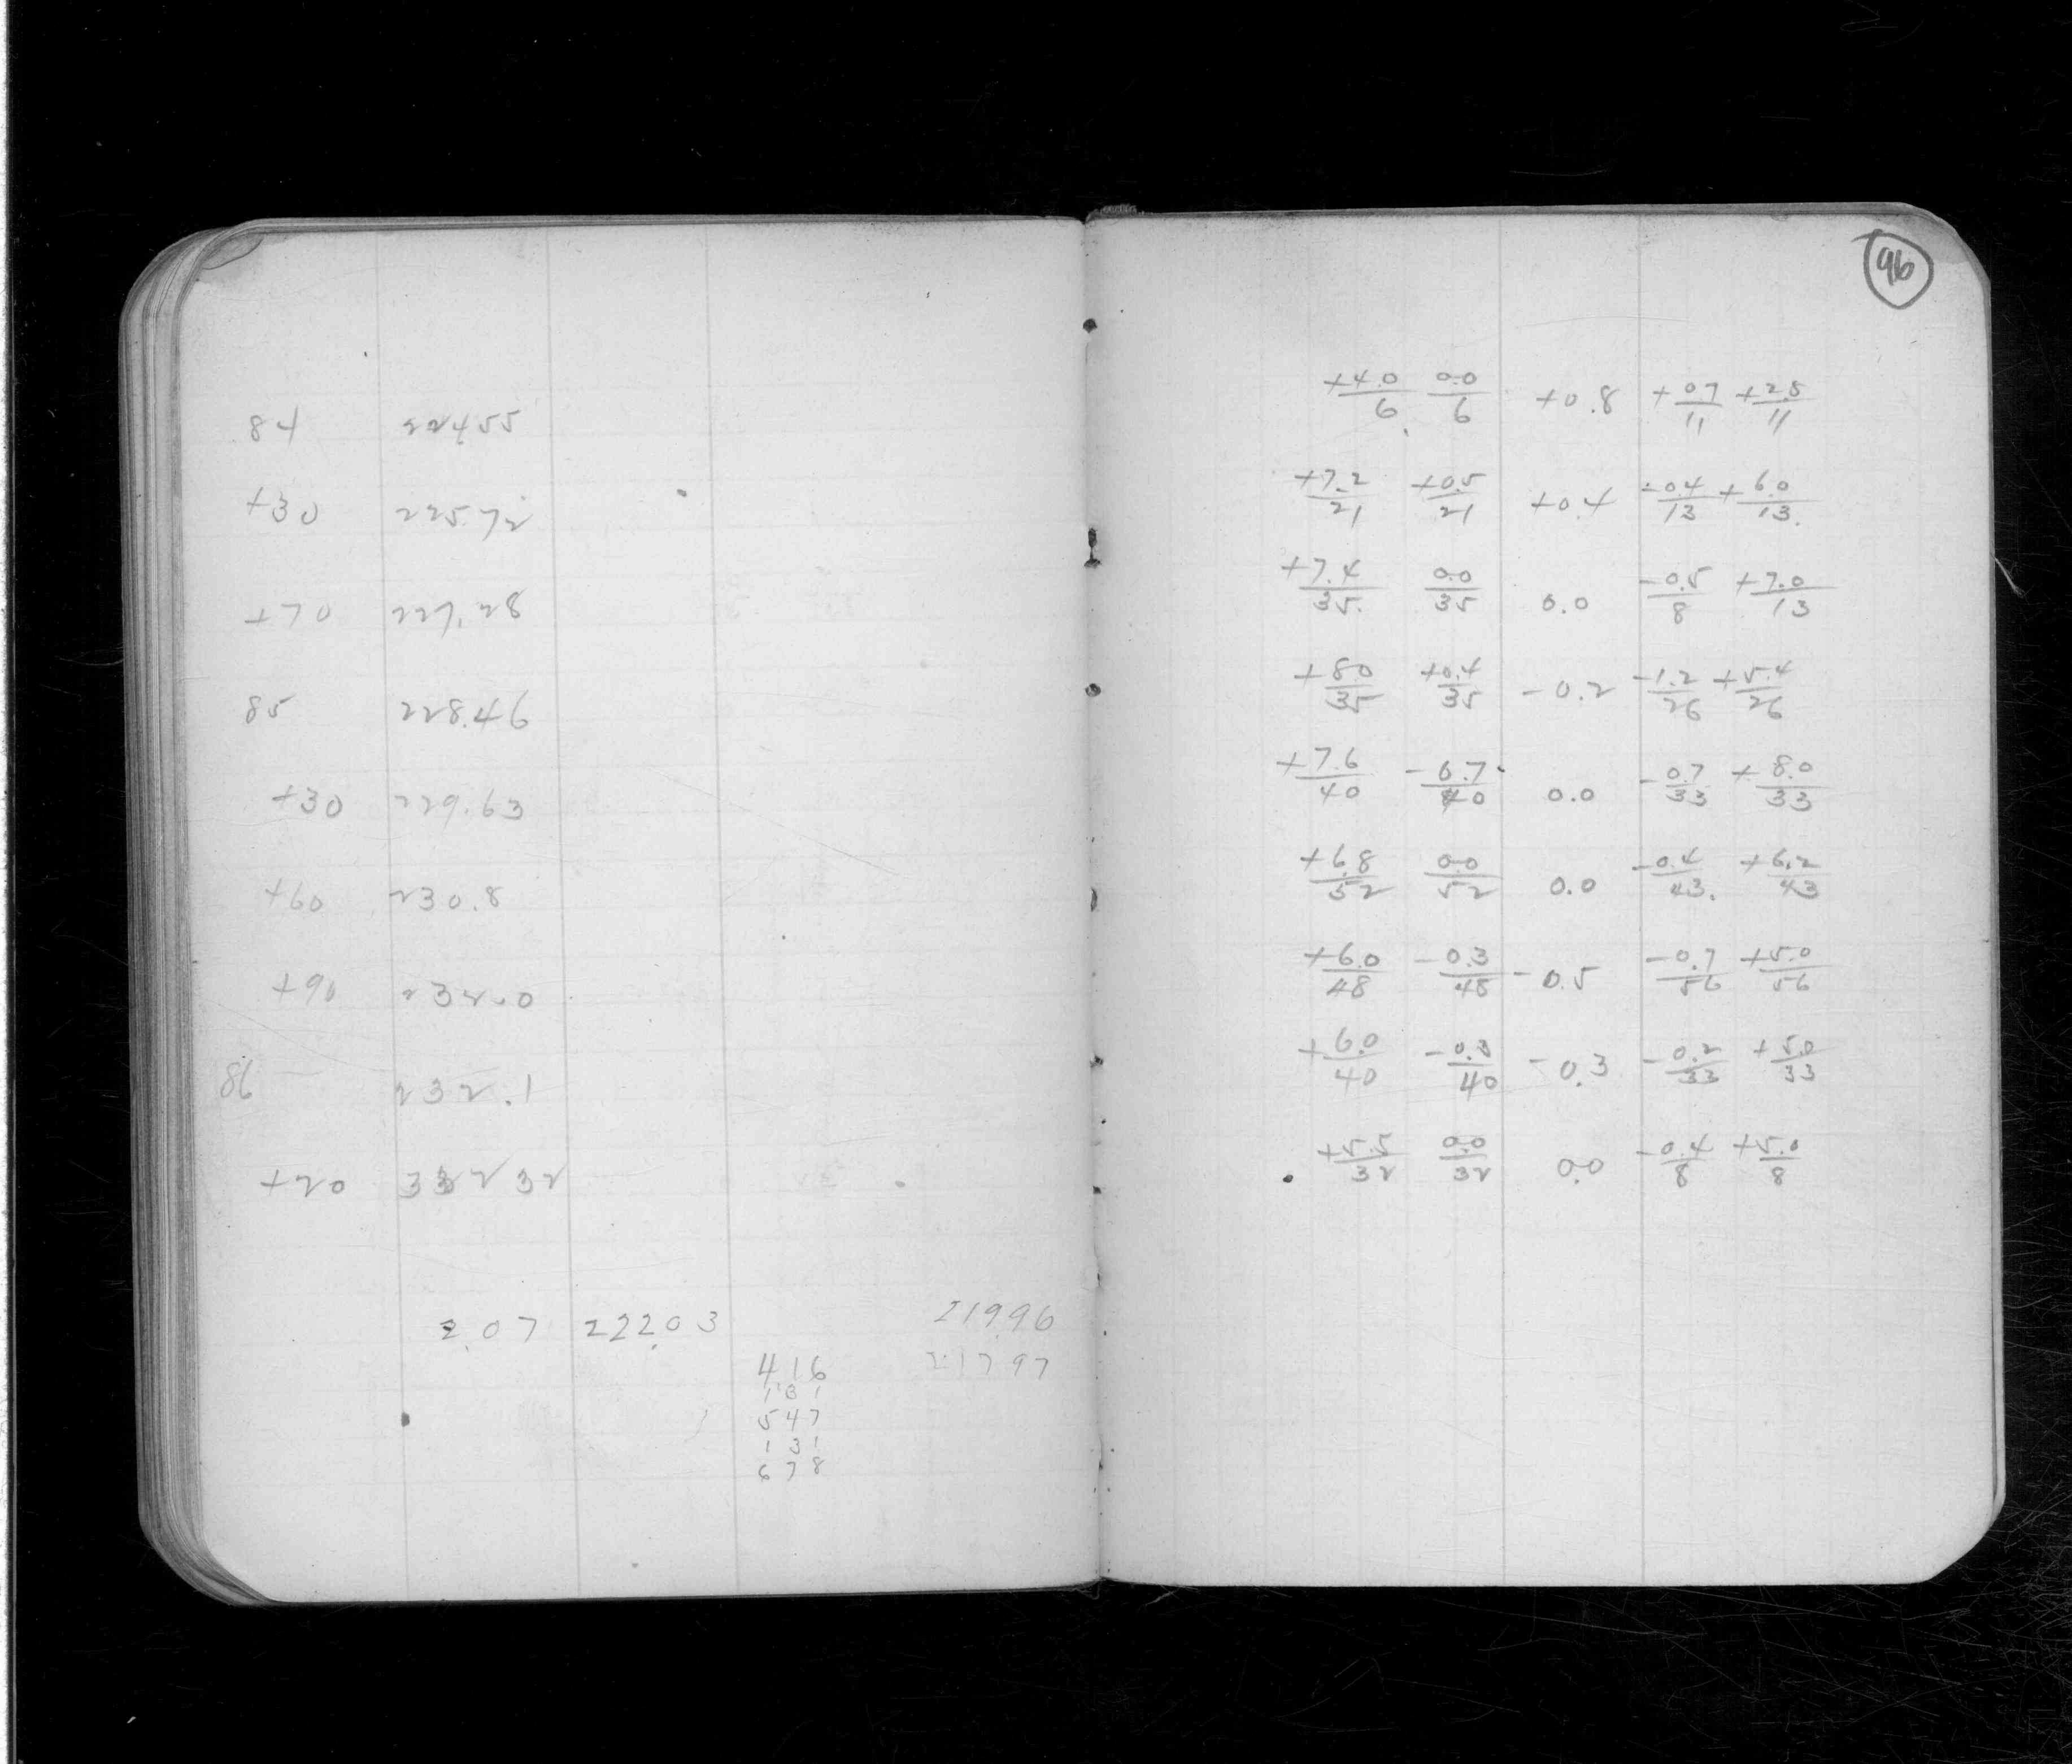 84 224.55
+30 225.72
+70 227.28
85 228.46
+30 229.63
+60 230.8
+90 232.0
86 232.1
+20 332 32
2.07 222.03 219.96
416 217 97
131
547
131
678
96
+4.0/6 0.0/6 +0.8 +0.7/11 +2.5/11
+7.2/21 +0.5/21 +0.4 -0.4/13 +6.0/13.
+7.4/35. 0.0/35 0.0 -0.5/8 +7.0/13
+8.0/35 +0.4/35 -0.2 -1.2/26 +5.4/26
+7.6/40 -0.7/40 0.0 -0.7/33 +8.0/33
+6.8/52 0.0/52 0.0 -0.4/43. +6.2/43
+6.0/48 -0.3/48 -0.5 -0.7/56 +5.0/56
+6.0/40 -0.3/40 -0.3 -0.2/33 +5.0/33
+5.5/32 0.0/32 0.0 -0.4/8 +5.0/8